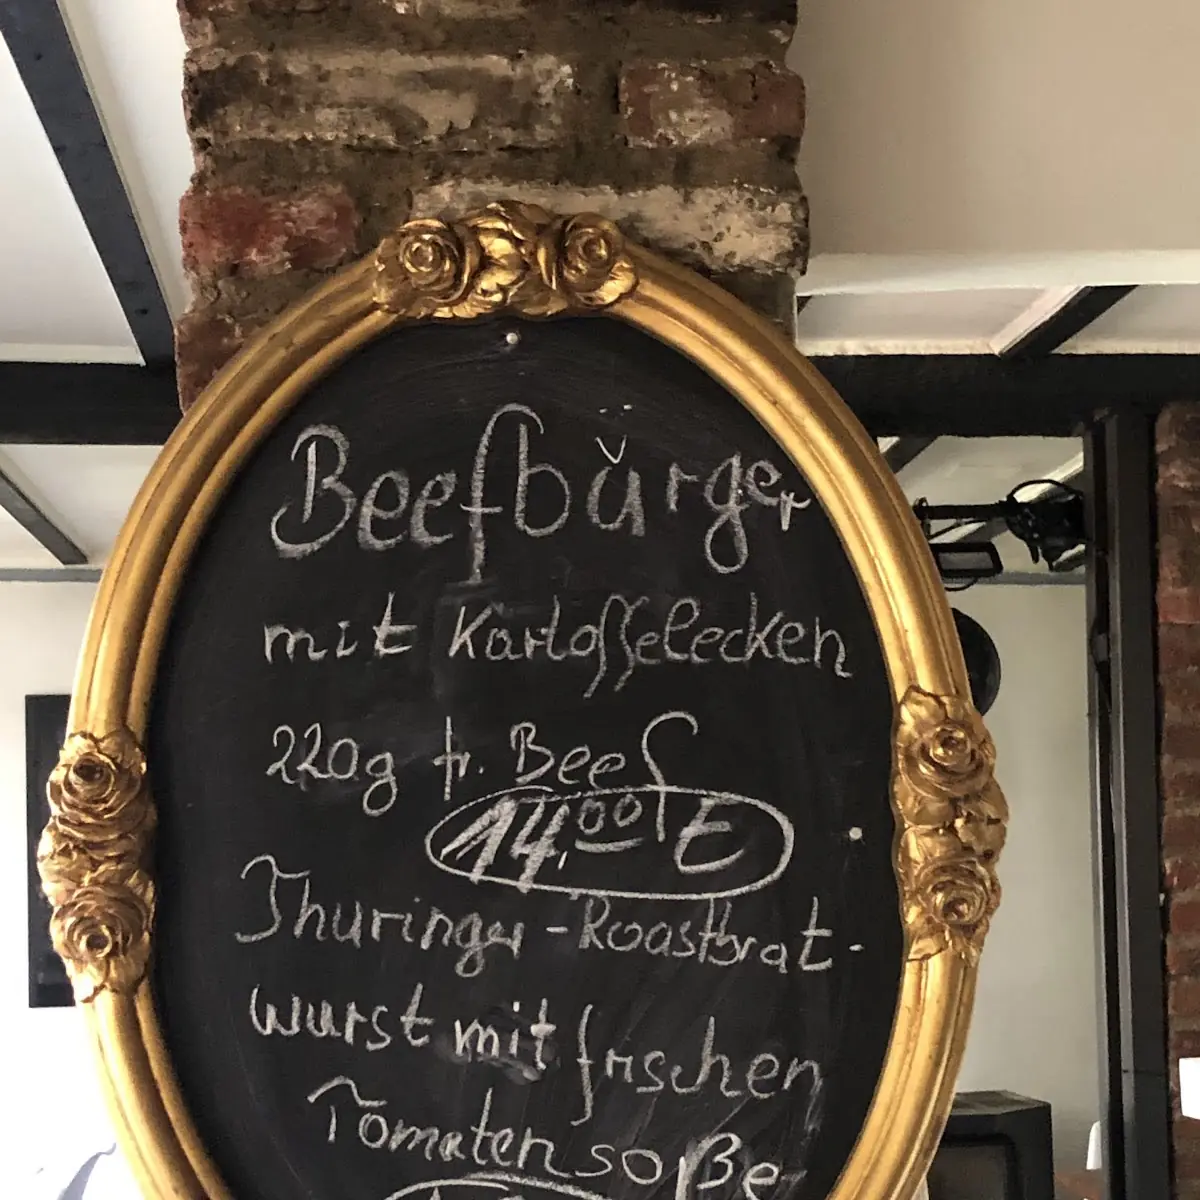 Beefbürger
mit Kartoffelecken
220g fr. Beef
14,00 €
Thuringer-Roastbrat-
wurst mit frischen
Tomatensoße